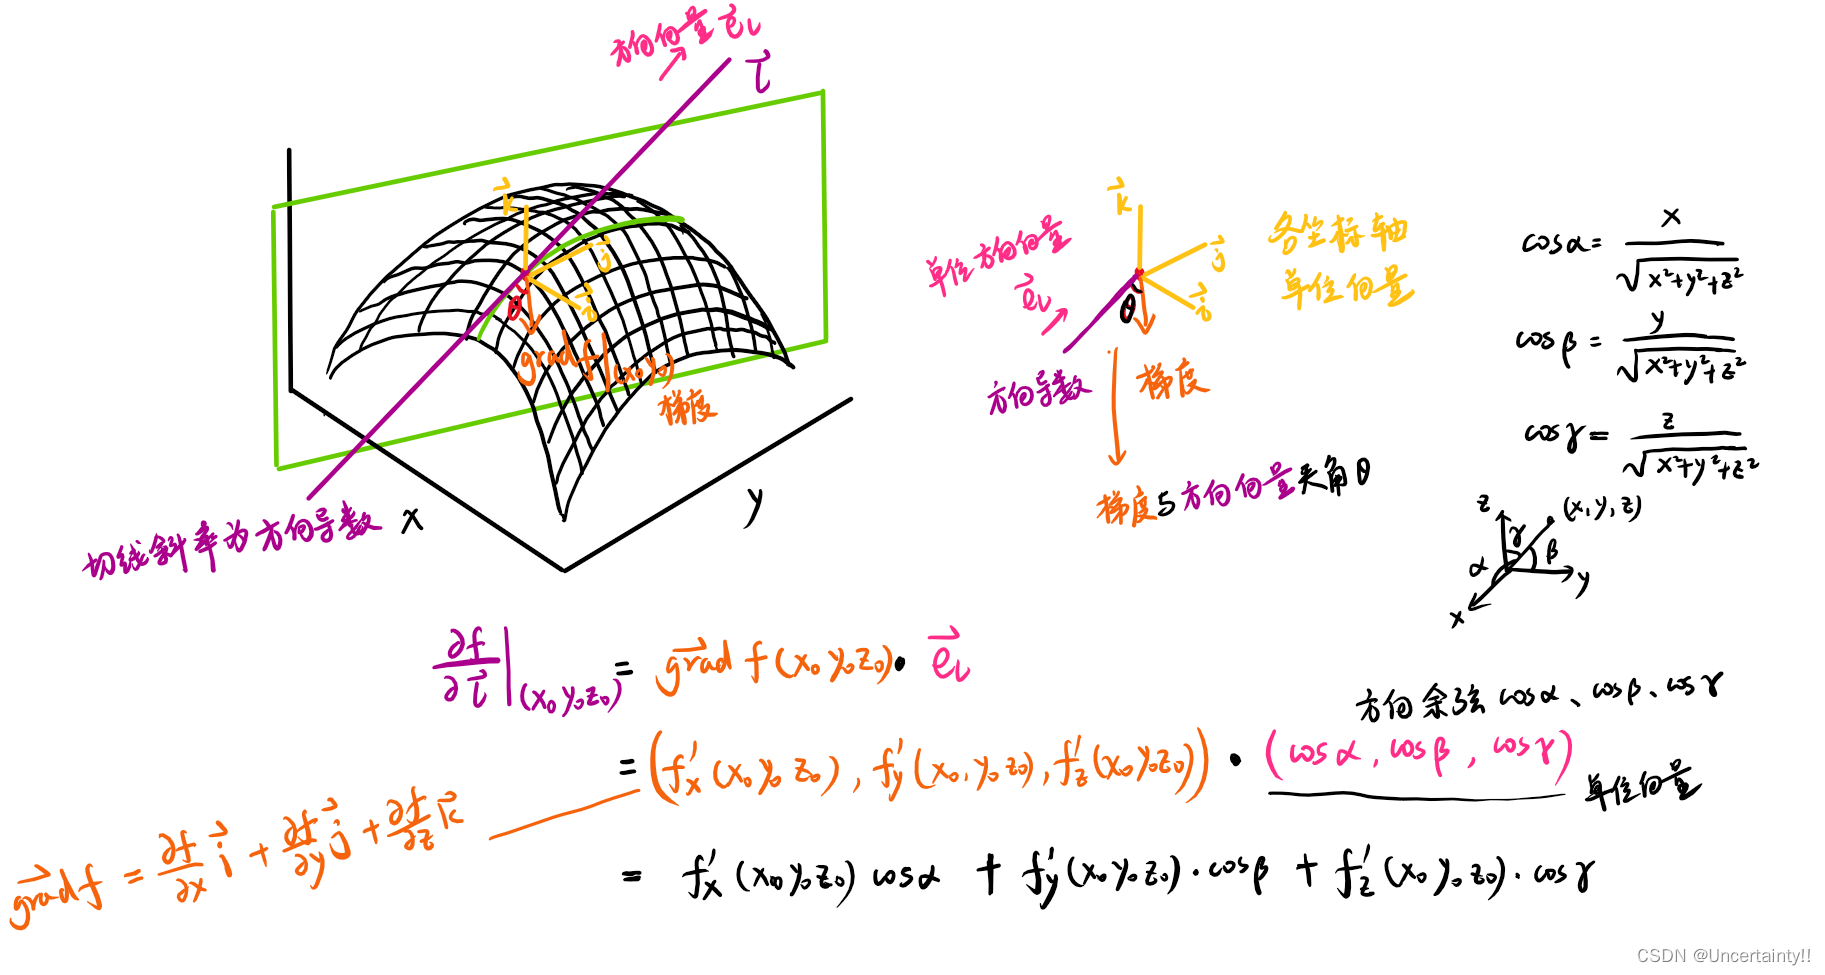 方向向量 e⃗ₗ
l⃗
k⃗
j⃗
i⃗
θ
grad f|(x₀y₀)
梯度
x
y
切线斜率为方向导数
k⃗
j⃗
i⃗
各坐标轴
单位向量
单位方向向量
e⃗ₗ
θ
方向导数
梯度
梯度与方向向量夹角θ
cosα = x / √(x²+y²+z²)
cosβ = y / √(x²+y²+z²)
cosγ = z / √(x²+y²+z²)
z
(x,y,z)
γ
β
α
y
x
∂f/∂l⃗ |(x₀y₀z₀) = grad⃗ f(x₀y₀z₀)· e⃗ₗ
方向余弦 cosα、cosβ、cosγ
= (f'x(x₀y₀z₀), f'y(x₀,y₀z₀), f'z(x₀y₀z₀)) · (cosα, cosβ, cosγ)
单位向量
grad⃗f = ∂f/∂x i⃗ + ∂f/∂y j⃗ + ∂f/∂z k⃗
= f'x(x₀y₀z₀) cosα + f'y(x₀y₀z₀)·cosβ + f'z(x₀y₀z₀)·cosγ
CSDN @Uncertainty!!